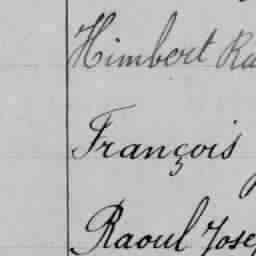 Himbert Ra
François
Raoul Jose